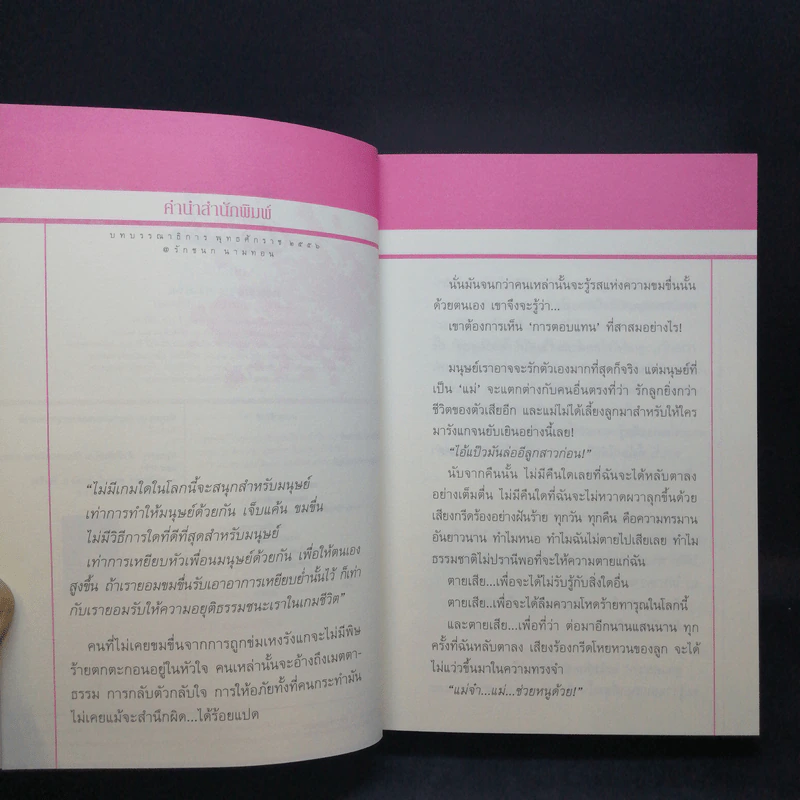 คำนำสำนักพิมพ์
บทบรรณาธิการ พุทธศักราช ๒๕๕๖
@ รักชนก นามทอน
“ไม่มีเกมใดในโลกนี้จะสนุกสำหรับมนุษย์
เท่าการทำให้มนุษย์ด้วยกัน เจ็บแค้น ขมขื่น
ไม่มีวิธีการใดที่ดีที่สุดสำหรับมนุษย์
เท่าการเหยียบหัวเพื่อนมนุษย์ด้วยกัน เพื่อให้ตนเอง
สูงขึ้น ถ้าเรายอมขมขื่นรับเอาอาการเหยียบย่ำนั้นไว้ ก็เท่า
กับเรายอมรับให้ความอยุติธรรมชนะเราในเกมชีวิต”
คนที่ไม่เคยขมขื่นจากการถูกข่มเหงรังแกจะไม่มีพิษ
ร้ายตกตะกอนอยู่ในหัวใจ คนเหล่านั้นจะอ้างถึงเมตตา-
ธรรม การกลับตัวกลับใจ การให้อภัยทั้งที่คนกระทำมัน
ไม่เคยแม้จะสำนึกผิด...ได้ร้อยแปด
นั่นมันจนกว่าคนเหล่านั้นจะรู้รสแห่งความขมขื่นนั้น
ด้วยตนเอง เขาจึงจะรู้ว่า...
เขาต้องการเห็น ‘การตอบแทน’ ที่สาสมอย่างไร!
มนุษย์เราอาจจะรักตัวเองมากที่สุดก็จริง แต่มนุษย์ที่
เป็น ‘แม่’ จะแตกต่างกับคนอื่นตรงที่ว่า รักลูกยิ่งกว่า
ชีวิตของตัวเสียอีก และแม่ไม่ได้เลี้ยงลูกมาสำหรับให้ใคร
มารังแกจนยับเยินอย่างนี้เลย!
“ไอ้แป๊วมันล่ออีลูกสาวก่อน!”
นับจากคืนนั้น ไม่มีคืนใดเลยที่ฉันจะได้หลับตาลง
อย่างเต็มตื่น ไม่มีคืนใดที่ฉันจะไม่หวาดผวาลุกขึ้นด้วย
เสียงกรีดร้องอย่างฝันร้าย ทุกวัน ทุกคืน คือความทรมาน
อันยาวนาน ทำไมหนอ ทำไมฉันไม่ตายไปเสียเลย ทำไม
ธรรมชาติไม่ปรานีพอที่จะให้ความตายแก่ฉัน
ตายเสีย...เพื่อจะได้ไม่รับรู้กับสิ่งใดอื่น
ตายเสีย..เพื่อจะได้ลืมความโหดร้ายทารุณในโลกนี้
และตายเสีย...เพื่อที่ว่า ต่อมาอีกนานแสนนาน ทุก
ครั้งที่หลับตาลง เสียงร้องกรีดโหยหวนของลูก จะได้
ไม่แว่วขึ้นมาในความทรงจำ
“แม่จ๋า...แม่...ช่วยหนูด้วย!”